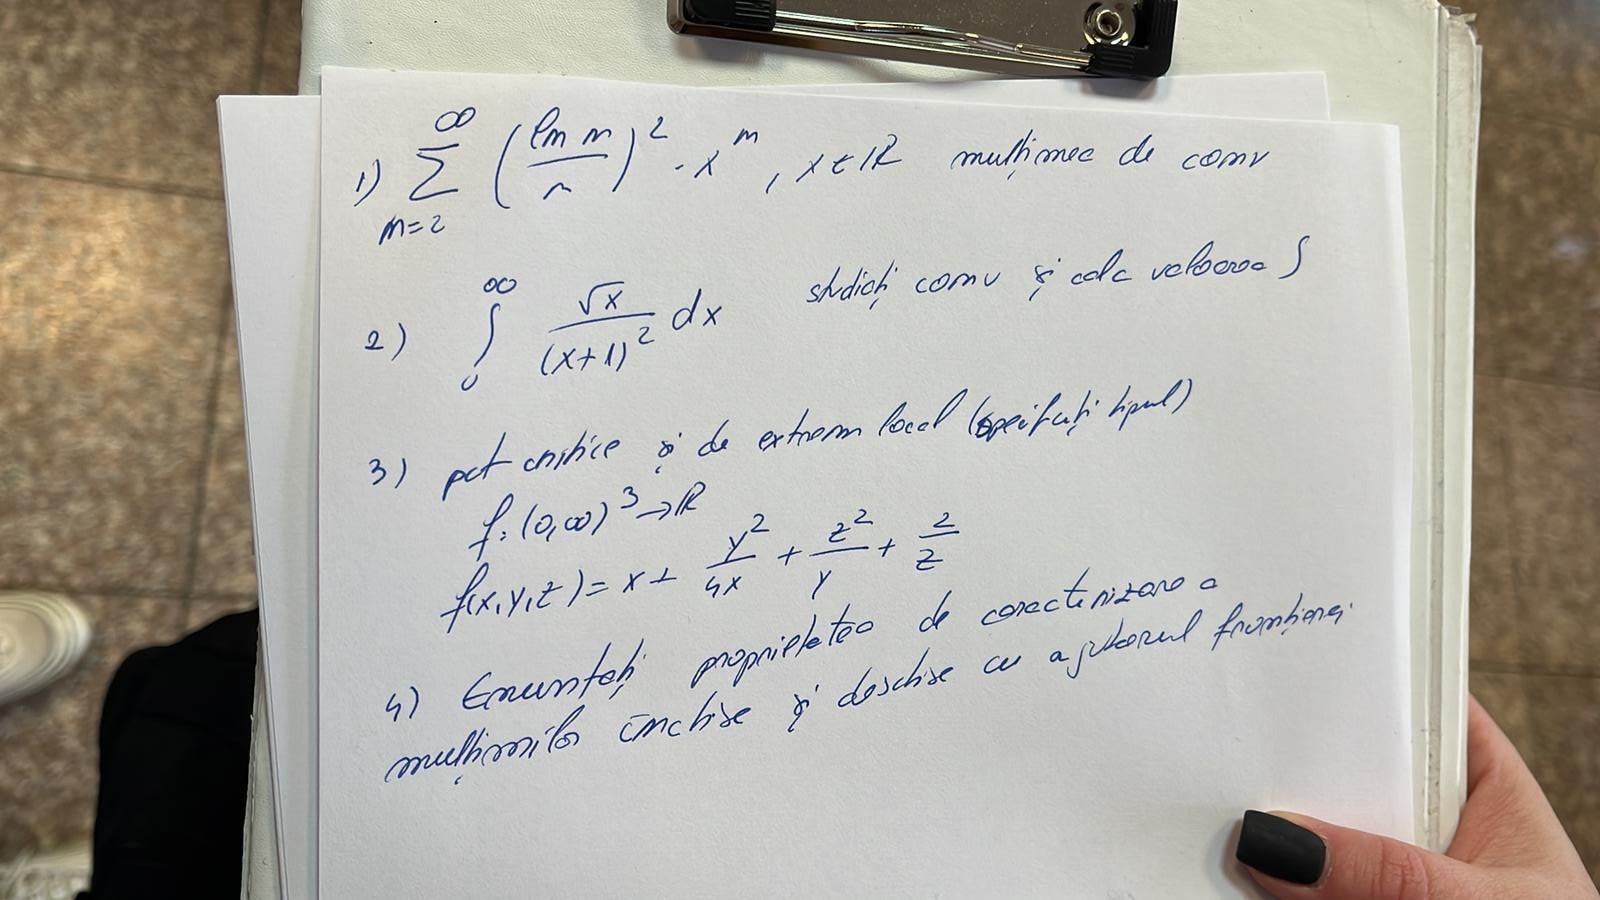 1) ∞ Σ n=2 (ln n / n)² · xⁿ , x ∈ ℝ mulțimea de conv
2) ∞ ∫ 0 √x / (x+1)² dx studiați conv și calc valoarea ∫
3) pct critice și de extrem local (specificați tipul)
f: (0,∞)³ → ℝ
f(x,y,z) = x + y²/4x + z²/y + 2/z
4) Enunțați proprietatea de caracterizare a
mulțimilor închise și deschise cu ajutorul frontierei.